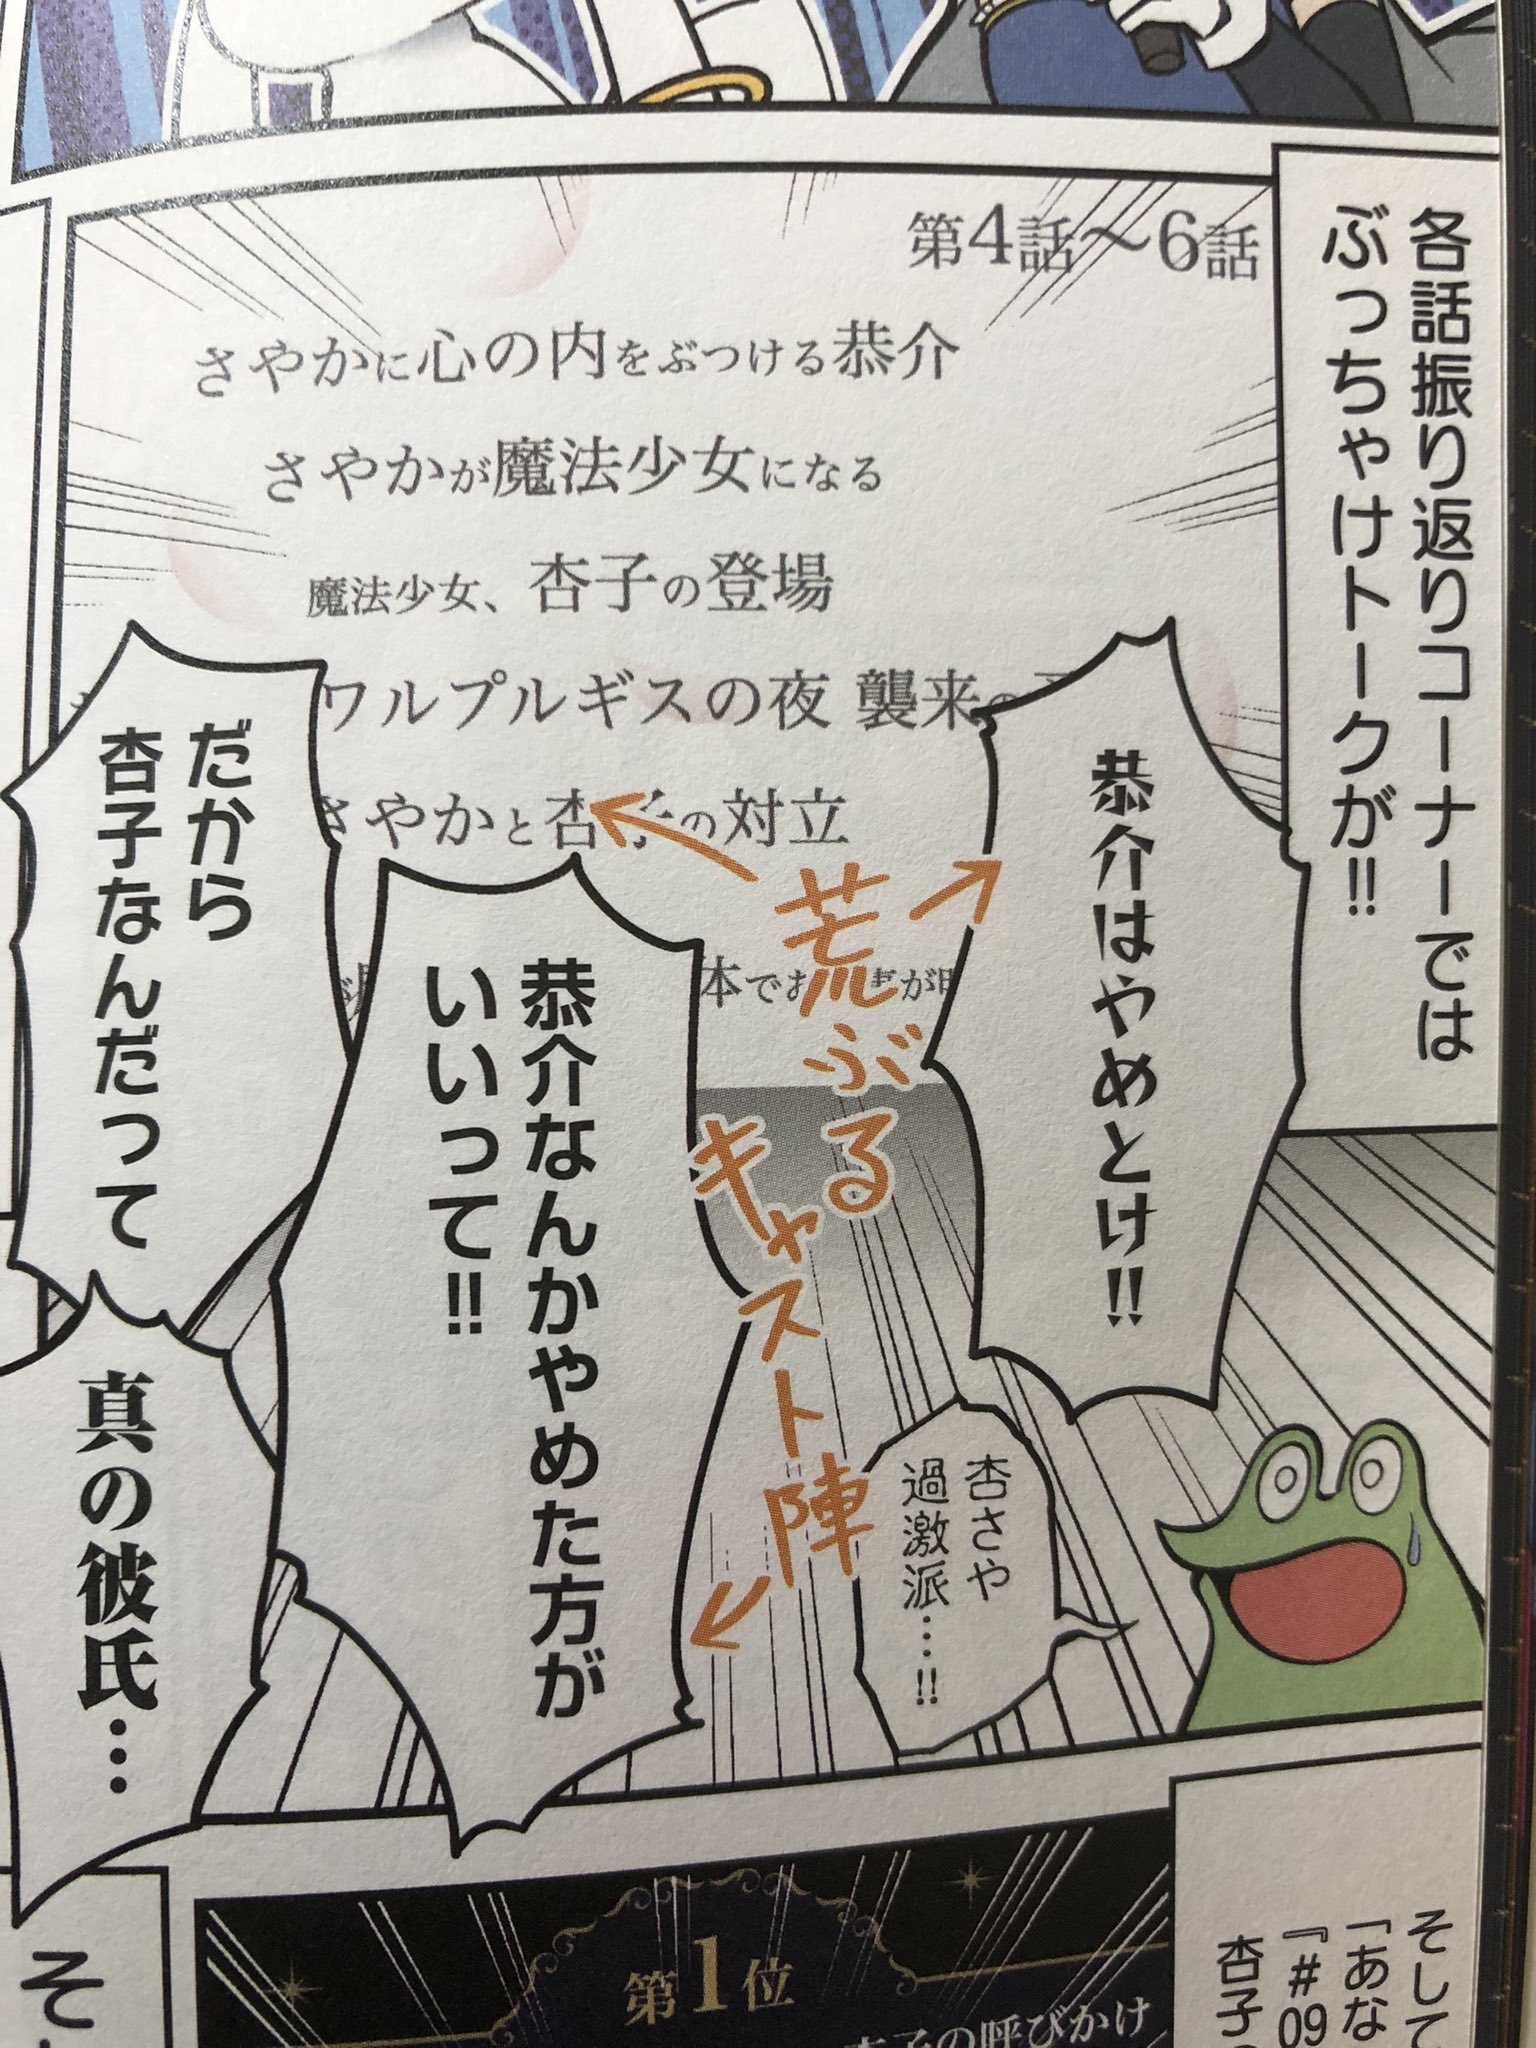 各話振り返りコーナーでは
ぶっちゃけトークが!!
第4話〜6話
さやかに心の内をぶつける恭介
さやかが魔法少女になる
魔法少女、杏子の登場
ワルプルギスの夜 襲来の
さやかと杏子の対立
本でお
が
恭介はやめとけ!!
荒ぶる
キャスト陣
杏さや
過激派…!!
恭介なんかやめた方が
いいって!!
だから
杏子なんだって
真の彼氏…
そして
「あな
『#09
杏子
第1位
杏子の呼びかけ
そ